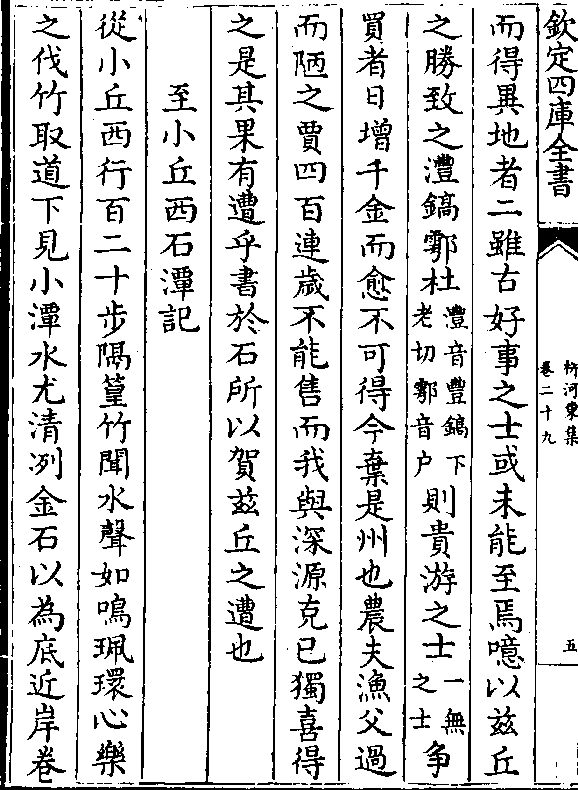 欽定四庫全書
柳河東集
卷二十九
五
而得異地者二雖古好事之士或未能至焉噫以茲丘
之勝致之灃鎬鄠杜灃音豐鎬下老切鄠音户則貴游之士一無之士爭
買者日增千金而愈不可得今棄是州也農夫漁父過
而陋之賈四百連歲不能售而我與深源克已獨喜得
之是其果有遭乎書於石所以賀茲丘之遭也
至小丘西石潭記
從小丘西行百二十步隔篁竹聞水聲如鳴珮環心樂
之伐竹取道下見小潭水尤清洌金石以為底近岸卷